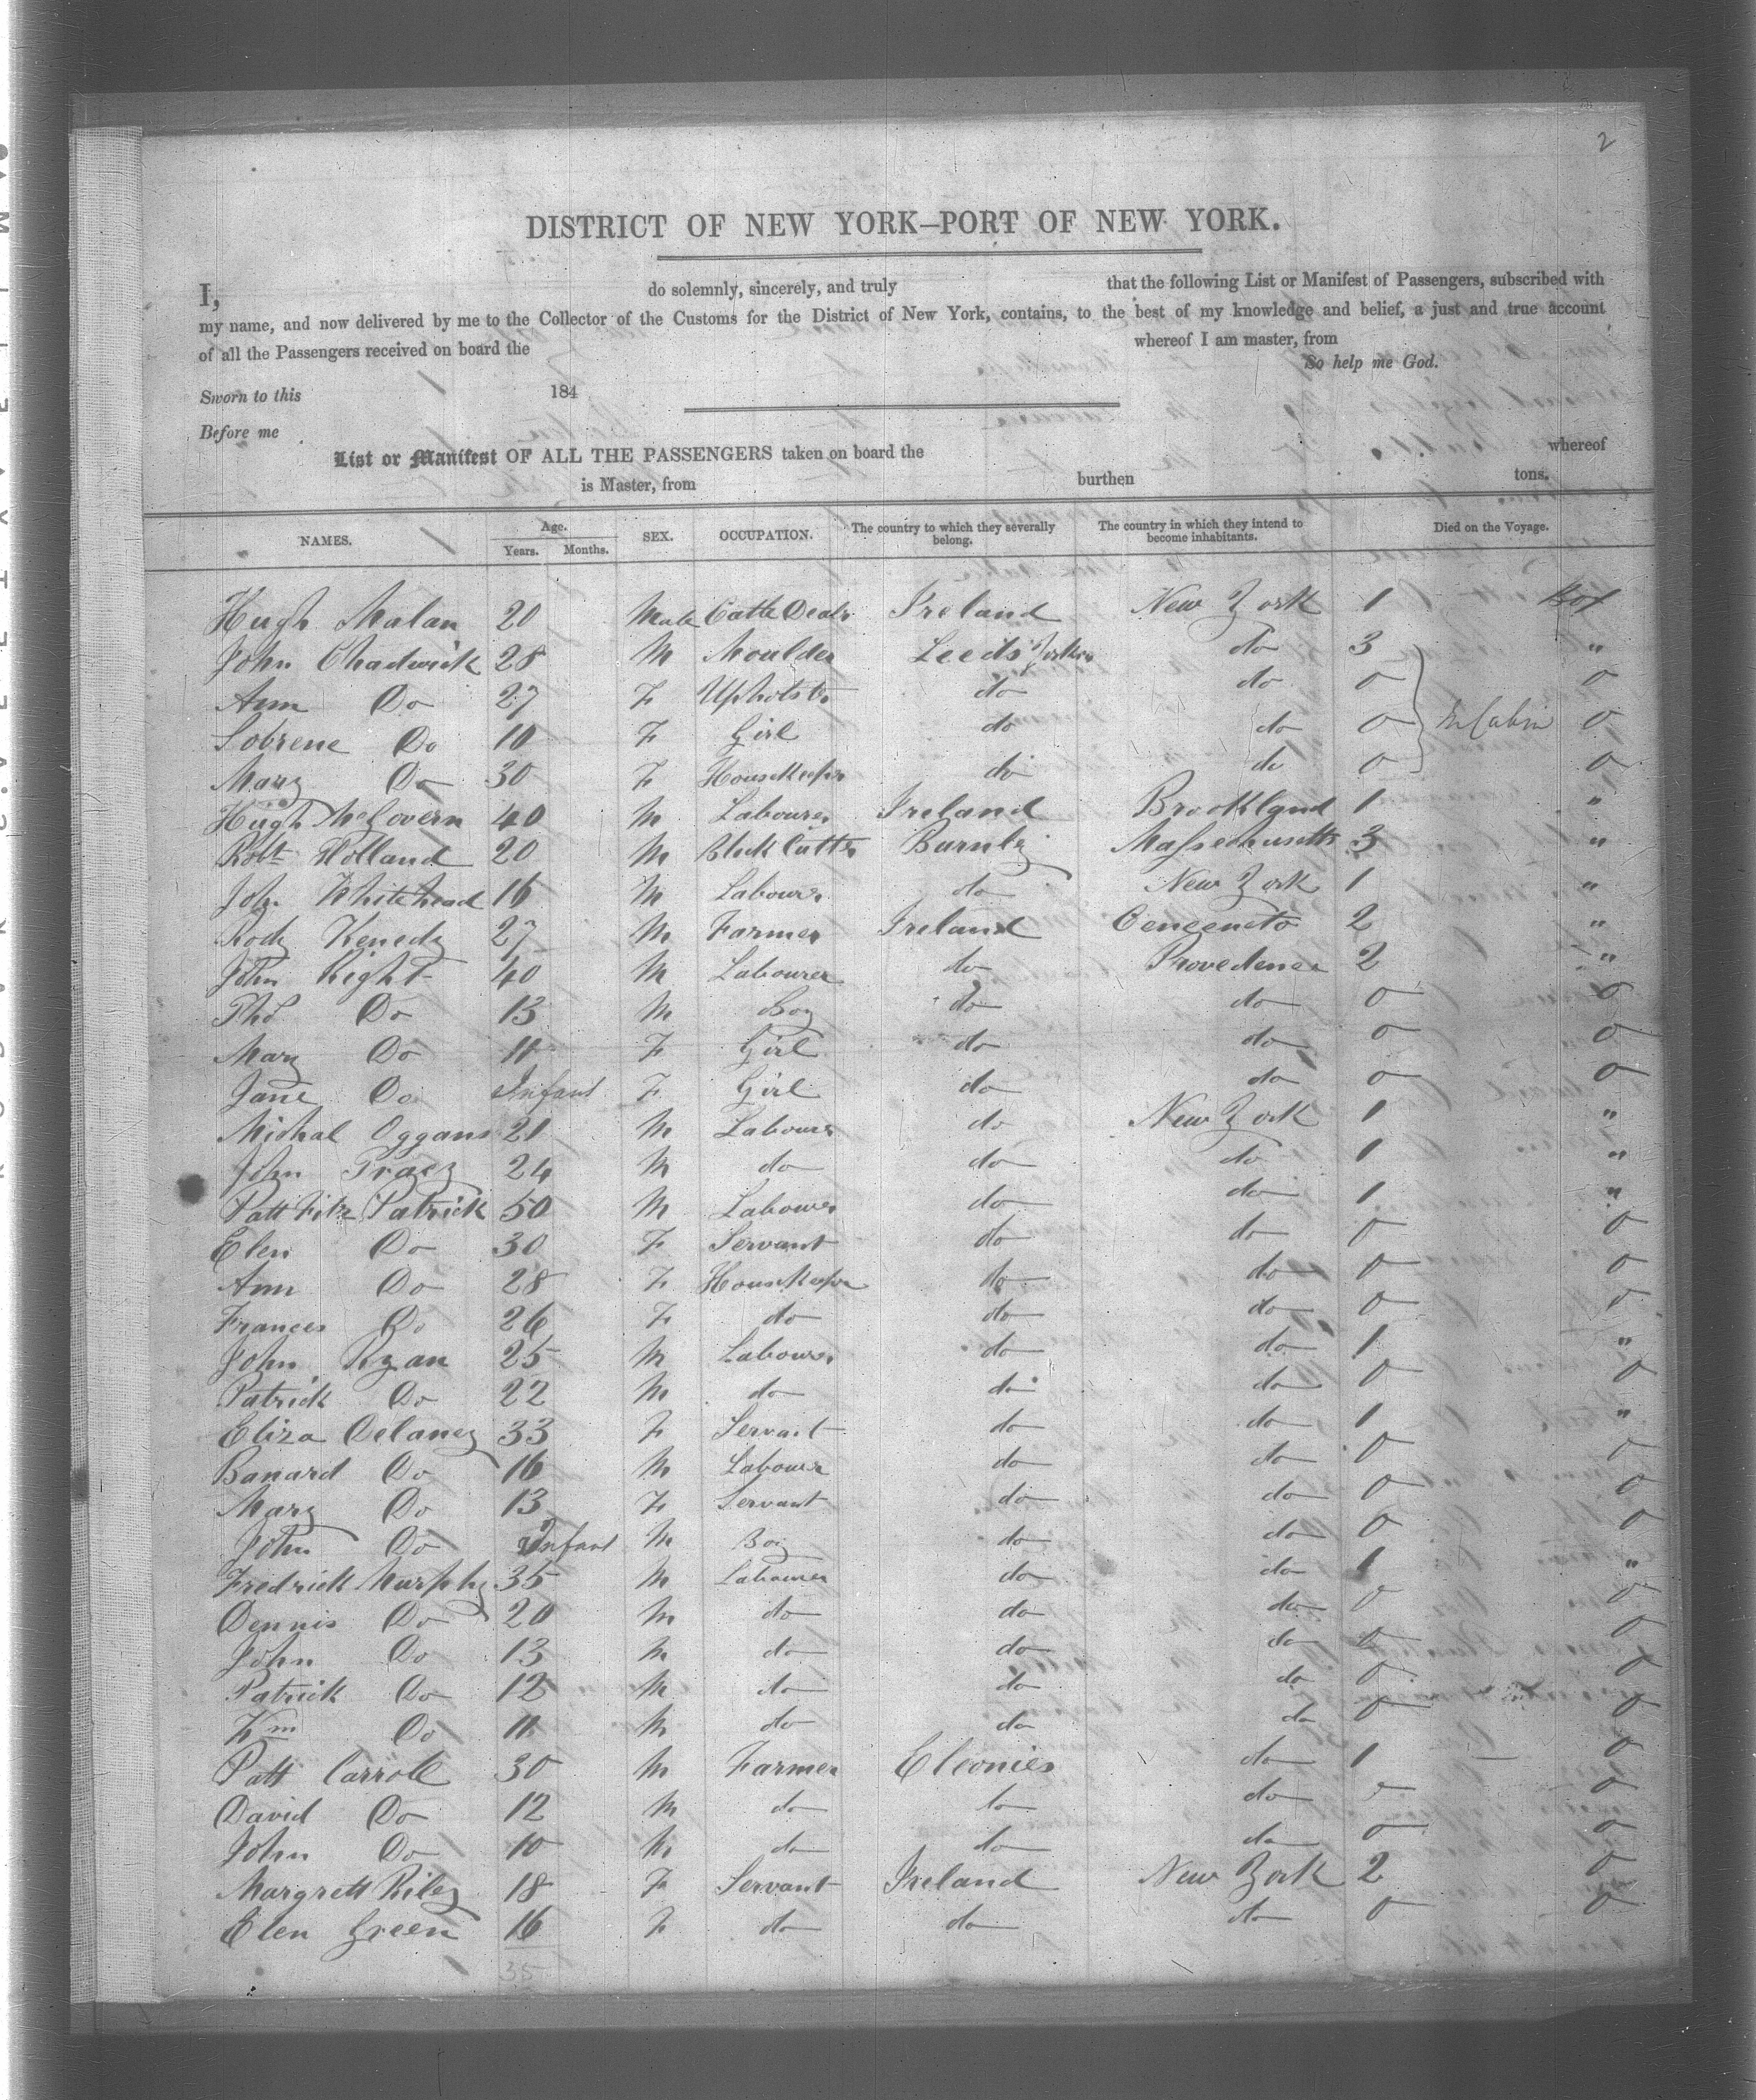 2
DISTRICT OF NEW YORK–PORT OF NEW YORK.
I, do solemnly, sincerely, and truly that the following List or Manifest of Passengers, subscribed with
my name, and now delivered by me to the Collector of the Customs for the District of New York, contains, to the best of my knowledge and belief, a just and true account
of all the Passengers received on board the whereof I am master, from
So help me God.
Sworn to this 184
Before me
List or Manifest OF ALL THE PASSENGERS taken on board the whereof
is Master, from burthen tons.
NAMES. Age. Years. Months. SEX. OCCUPATION. The country to which they severally belong. The country in which they intend to become inhabitants. Died on the Voyage.
Hugh Malan 20 Male Cattle Dealr Ireland New York 1 Box
John Chadwick 28 M Moulder Leeds do 3 "
Ann Do 27 F do do 0 0
Sobrene Do 10 F Girl do do 0 In Cabin 0
Mary Do 30 F Housekeeper do do 0 0
Hugh McGovern 40 M Labourer Ireland Brooklynd 1 "
Robt Holland 20 M Block Cutter Burnly Massechusetts 3 "
John Whitehead 16 M Labourer do New York 1 "
Rody Kenedy 27 M Farmer Ireland Cenceneto 2 "
John Right 40 M Labourer do Provedence 2 "
Thos Do 13 M Boy do do 0 0
Mary Do 11 F Girl do do 0 0
Jane Do Infant F Girl do do 0 0
Michal Oggans 21 M Labourer do New York 1 "
John Tracy 24 M do do do 1 "
Patt Fitz Patrick 50 M Labourer do do 1 "
Elen Do 30 F Servant do do 0 0
Ann Do 28 F Housekeeper do do 0 0
Frances Do 26 F do do do 0 0
John Ryan 25 M Labourer do do 1 "
Patrick Do 22 M do do do 0 0
Eliza Delaney 33 F Servant do do 1 "
Banard Do 16 M Labourer do do 0 0
Mary Do 13 F Servant do do 0 0
John Do Infant M Boy do do 0 0
Fredrick Murphy 35 M Labourer do do 1 "
Dennis Do 20 M do do do 0 0
John Do 13 M do do do 0 0
Patrick Do 12 M do do do 0 0
Wm Do 11 M do do do 0 0
Patt Carroll 30 M Farmer do 1 — 0
David Do 12 M do do do 0 0
John Do 10 M do do do 0 0
Margrett Riley 18 F Servant Ireland New York 2 0
Elen Green 16 F do do do 0 0
35